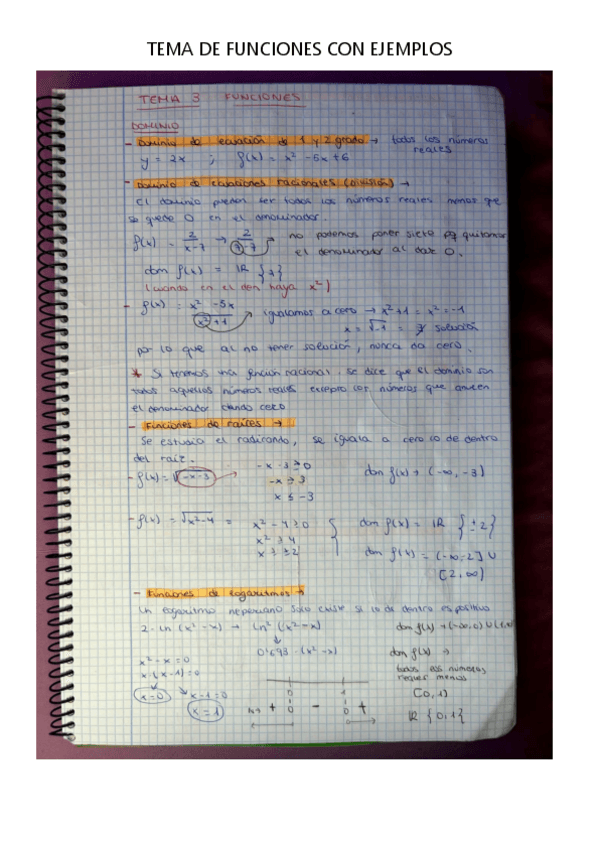 TEMA DE FUNCIONES CON EJEMPLOS
TEMA 3 FUNCIONES
DOMINIO
- Dominio de ecuación de 1 y 2 grado → todos los números reales
y = 2x ; f(x) = x² - 5x + 6
- Dominio de ecuaciones racionales (División) →
El dominio pueden ser todos los números reales menos que
se quede 0 en el denominador.
f(x) = 2/(x-7) → 2/(7-7) no podemos poner siete pq quitamos
el denominador al dar 0.
dom f(x) = ℝ {7}
(cuando en el den haya x²)
- f(x) = (x² - 5x)/(x²+1) igualamos a cero → x²+1 = x² = -1
x = √-1 = ∄ solución
por lo que al no tener solución, nunca da cero.
* Si tenemos una función racional, se dice que el dominio son
todos aquellos números reales excepto los números que anulen
el denominador dando cero
- Funciones de raíces →
Se estudia el radicando, se iguala a cero lo de dentro
del raíz.
- f(x) = √-x-3 -x-3 ≥ 0 dom f(x) → (-∞, -3]
-x ≥ 3
x ≤ -3
- f(x) = √x²-4 = x² - 4 ≥ 0 dom f(x) = ℝ {±2}
x² ≥ 4
x ≥ ±2 dom f(x) = (-∞-2] ∪
[2, ∞)
- Funciones de logaritmos →
Un logaritmo neperiano solo existe si lo de dentro es positivo
2·ln (x²-x) → ln² (x²-x) dom f(x) → (-∞,0) ∪
0'693 - (x²-x) dom f(x) →
x² - x = 0 todos los números
x·(x-1) = 0 reales menos
x=0 x-1=0 0 1 [0,1)
x=1 + 0 - 0 + ℝ {0,1}